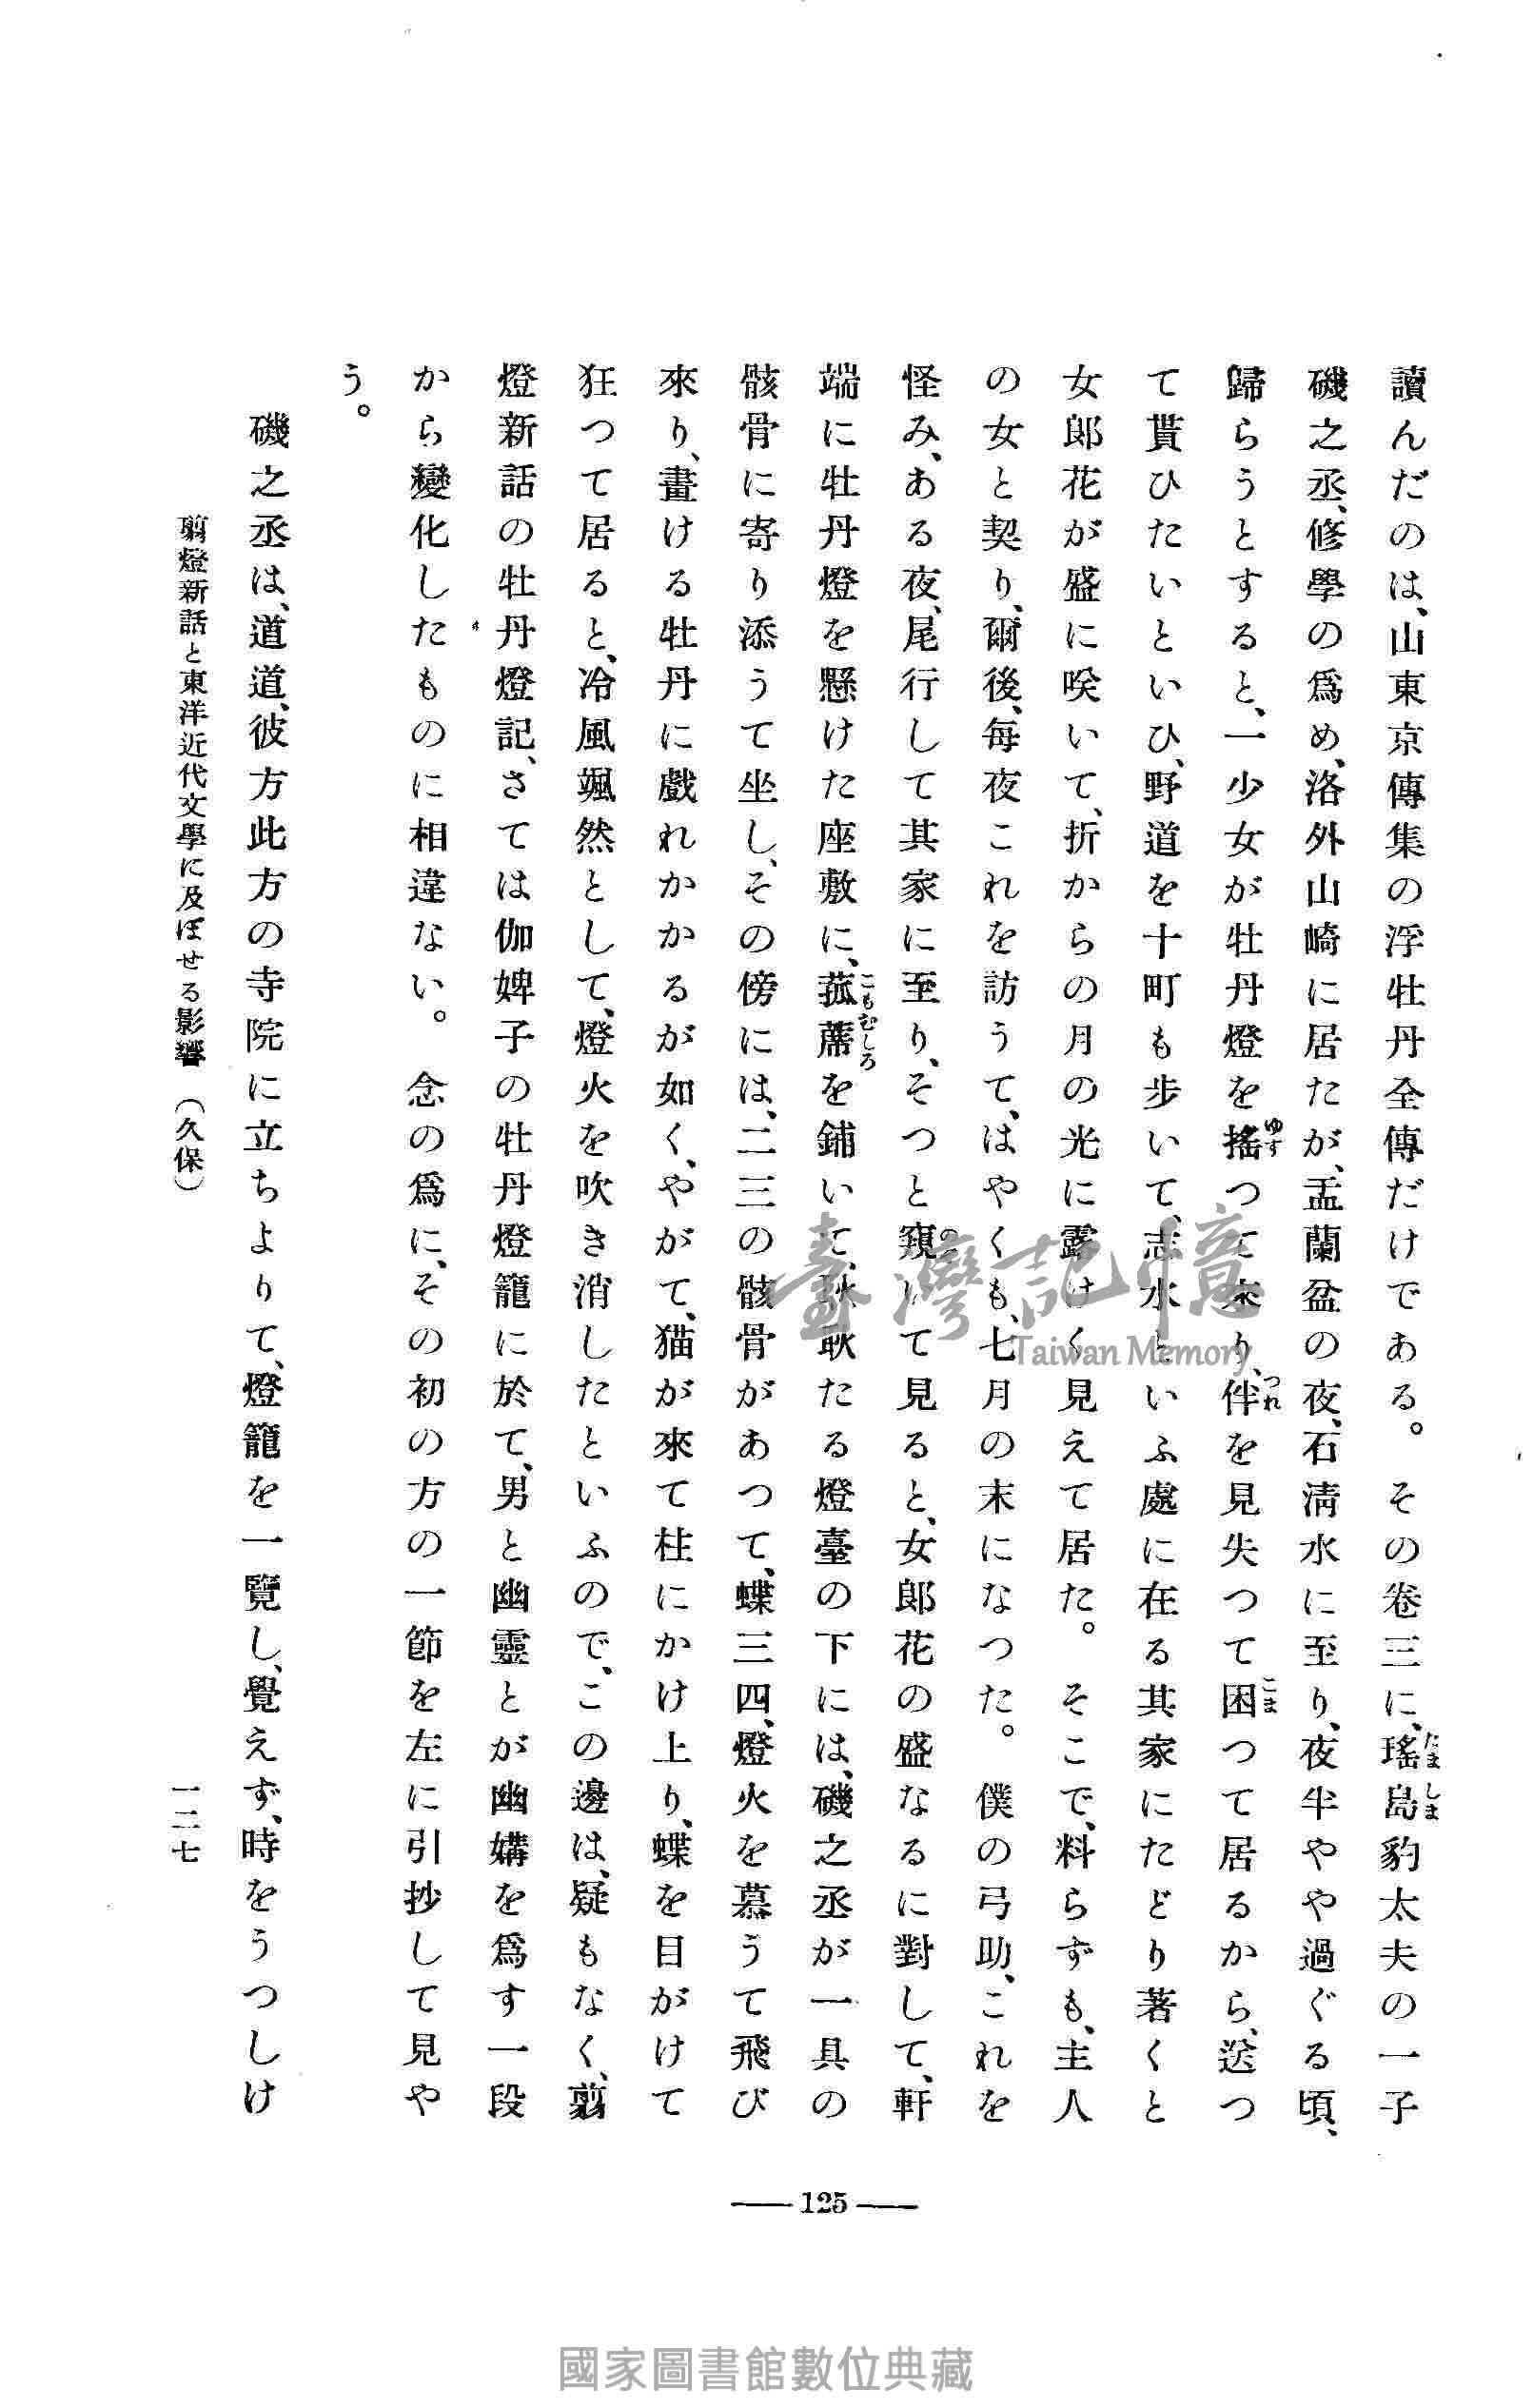 讀んだのは、山東京傳集の浮牡丹全傳だけである。その卷三に、瑤島豹太夫の一子
たましま
磯之丞、修學の爲め、洛外山崎に居たが、盂蘭盆の夜、石淸水に至り、夜半やや過ぐる頃、
歸らうとすると、一少女が牡丹燈を搖つて來り、伴を見失つて困つて居るから、送つ
ゆす
つれ
こま
て貰ひたいといひ、野道を十町も步いて、志水といふ處に在る其家にたどり著くと
女郞花が盛に咲いて、折からの月の光に露けく見えて居た。そこで、料らずも、主人
の女と契り、爾後、每夜これを訪うて、はやくも、七月の末になつた。僕の弓助、これを
怪み、ある夜、尾行して其家に至り、そつと窺いて見ると、女郞花の盛なるに對して、軒
のぞ
端に牡丹燈を懸けた座敷に、菰蓆を鋪いて、耿耿たる燈臺の下には、磯之丞が一具の
こもむしろ
骸骨に寄り添うて坐し、その傍には、二三の骸骨があつて、蝶三四、燈火を慕うて飛び
來り、畫ける牡丹に戲れかかるが如く、やがて、猫が來て柱にかけ上り、蝶を目がけて
狂つて居ると、冷風颯然として、燈火を吹き消したといふので、この邊は、疑もなく、翦
燈新話の牡丹燈記、さては伽婢子の牡丹燈籠に於て、男と幽靈とが幽媾を爲す一段
から變化したものに相違ない。念の爲に、その初の方の一節を左に引抄して見や
う。
磯之丞は、道道、彼方此方の寺院に立ちよりて、燈籠を一覽し、覺えず、時をうつしけ
翦燈新話と東洋近代文學に及ぼせる影響(久保)
一二七
125
臺灣記憶
Taiwan Memory
國家圖書館數位典藏